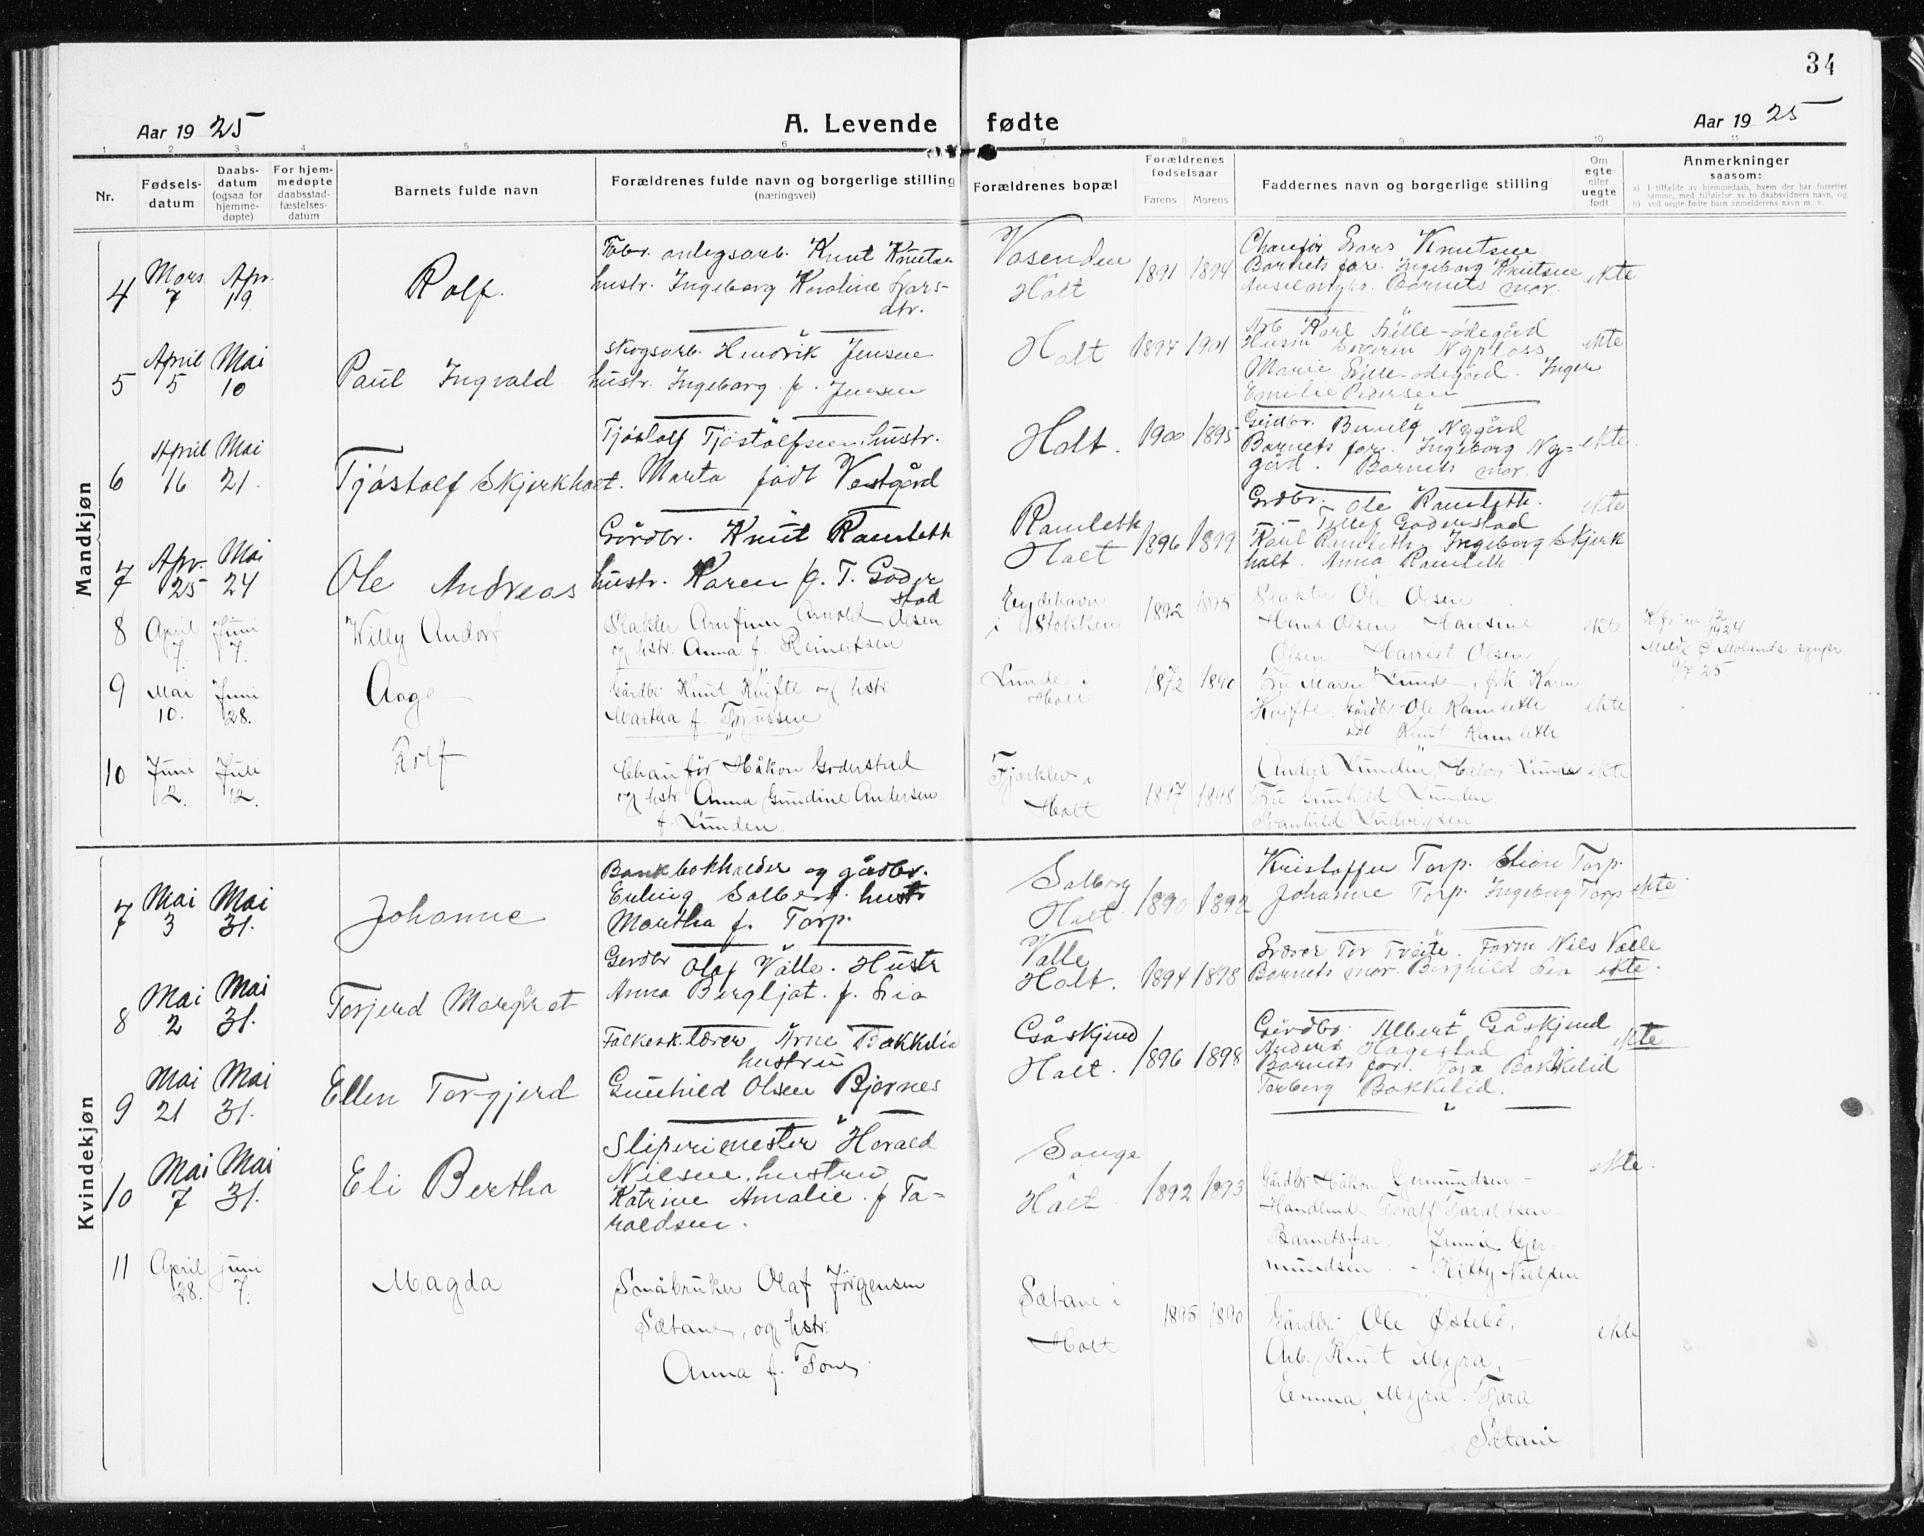 34
Aar 1925
A. Levende fødte
Aar 1925
1 2 3 4 5 6 7 8 9 10 11
Nr.
Fødsels-
datum
Daabs-
datum
(ogsaa for
hjemme-
døpte)
For hjem-
medøpte
daabsstad-
fæstelses-
datum
Barnets fulde navn
Forældrenes fulde navn og borgerlige stilling
(næringsvei)
Forældrenes bopæl
Forældrenes
fødselsaar
Farens Morens
Faddernes navn og borgerlige stilling
Om
egte
eller
uegte
født
Anmerkninger
saasom:
a) I tilfælde av hjemmedaab, hvem der har forrettet
samme, med tilføielse av to daabsvidners navn, og
b) ved uegte fødte barn anmelderens navn m. v.
Mandkjøn
4
Mars
7
Apr.
19
Rolf.
Fabr. anlegsarb. Knut Knutsen
hustr. Ingeborg Karoline Lars-
dtr.
Vasenden
Holt
1891 1894
Lars Knutsen
Barnets far. Ingeborg Knutsen
Barnets mor.
ekte
5
April
5
Mai
10
Paul Ingvald
Skogsarb. Hendrik Jensen
hustr. Ingeborg f. Jensen
Holt
1897 1901
Arb Karl Lille-ødegård
Severin Nyplass
Marie Lille-ødegård. Inger
Emilie Pedersen
ekte
6
April
16
Mai
21.
Tjøstolf Skjerkholt.
Tjøstolf Tjøstolfsen. hustr.
Marta født Vestgård
Holt.
1900 1895
Nygård
Barnets far. Ingeborg Ny-
gård. Barnets mor.
ekte
7
Apr.
25
Mai
24
Ole Andreas
Gårdbr. Knut Ramleth
hustr. Karen f. T. Goder
stad
Ramleth
Holt
1896 1899
Grdbr. Ole Ramleth.
Tellef Goderstad
Ramleth. Ingeborg Skjerk
holt. Anna Ramleth
ekte
8
April
7.
Juni
7.
Willy Andorf
Slakter Arnfinn Arnold Olsen
og hstr. Anna f. Reinertsen
Eydehavn
i Stokken
1892 1895
Slakter Ole Olsen
Hans Olsen Hansine
Olsen Harriet Olsen
ekte
12
1924
Meldt Ø. Molands sgnpr.
9/7 25
9
Mai
10.
Juni
28.
Aage
Gårdbr. Knut Knifte og hstr.
Martha f. Torjussen
Lunde i
Holt
1872 1890
Fru Maren Lunde, frk. Karen
Knifte. Gårdbr. Ole Ramleth
Knut Ramleth
ekte
10
Juni
2.
Juli
12.
Rolf
Chauffør Håkon Goderstad
og hstr. Anna Gundine Andersen
f. Lunden.
Fjærklev i
Holt
1897 1898
Lunden, Halvor Lunde
Fru Gunhild Lunden.
Ludvigsen
ekte
Kvindekjøn
7
Mai
3
Mai
31.
Johanne
Bankbokholder og gårdbr.
Erling Solberg. hustr
Martha f. Torp.
Solberg
Holt.
1890 1892
Kristoffer Torp. Torp.
Johanne Torp. Ingeborg Torp
ekte.
8
Mai
2
Mai
31.
Torjerd Margret
Gårdbr Olaf Valle. Hustr
Anna Bergljot. f. Lia
Valle
Holt.
1894 1898
Lærer Tor Tveite. Form Nils Valle
Barnets mor. Borghild Lia
ekte.
9
Mai
21
Mai
31.
Ellen Torgjerd
Folkesk.lærer Arne Bakkelid
hustru
Gunhild Olsen Bjørnes
Gåskjend
Holt.
1896 1898
Gårdbr. Albert Gåskjend
Anders Hagestad
Barnets far. Tora Bakkelid
Torborg Bakkelid.
ekte
10
Mai
7
Mai
31.
Eli Bertha
Sliperimester Harald
Nilsen. hustru
Katrine Amalie. f Ta-
raldsen.
Songe
Holt.
1892 1893
Gårdbr Håkon Germundsen -
Toralf Taraldsen
Barnets far. Jennie Ger-
mundsen. - Kitty Nielsen
ekte.
11
April
28.
juni
7.
Magda
Småbruker Olaf Jörgensen
Sætane, og hstr.
Anna f. Tones
Sætane i
Holt
1895 1890
Gårdbr. Ole Østebö,
Arb. Knut Myra,
Emma Myra. Tora
Sætane
ekte